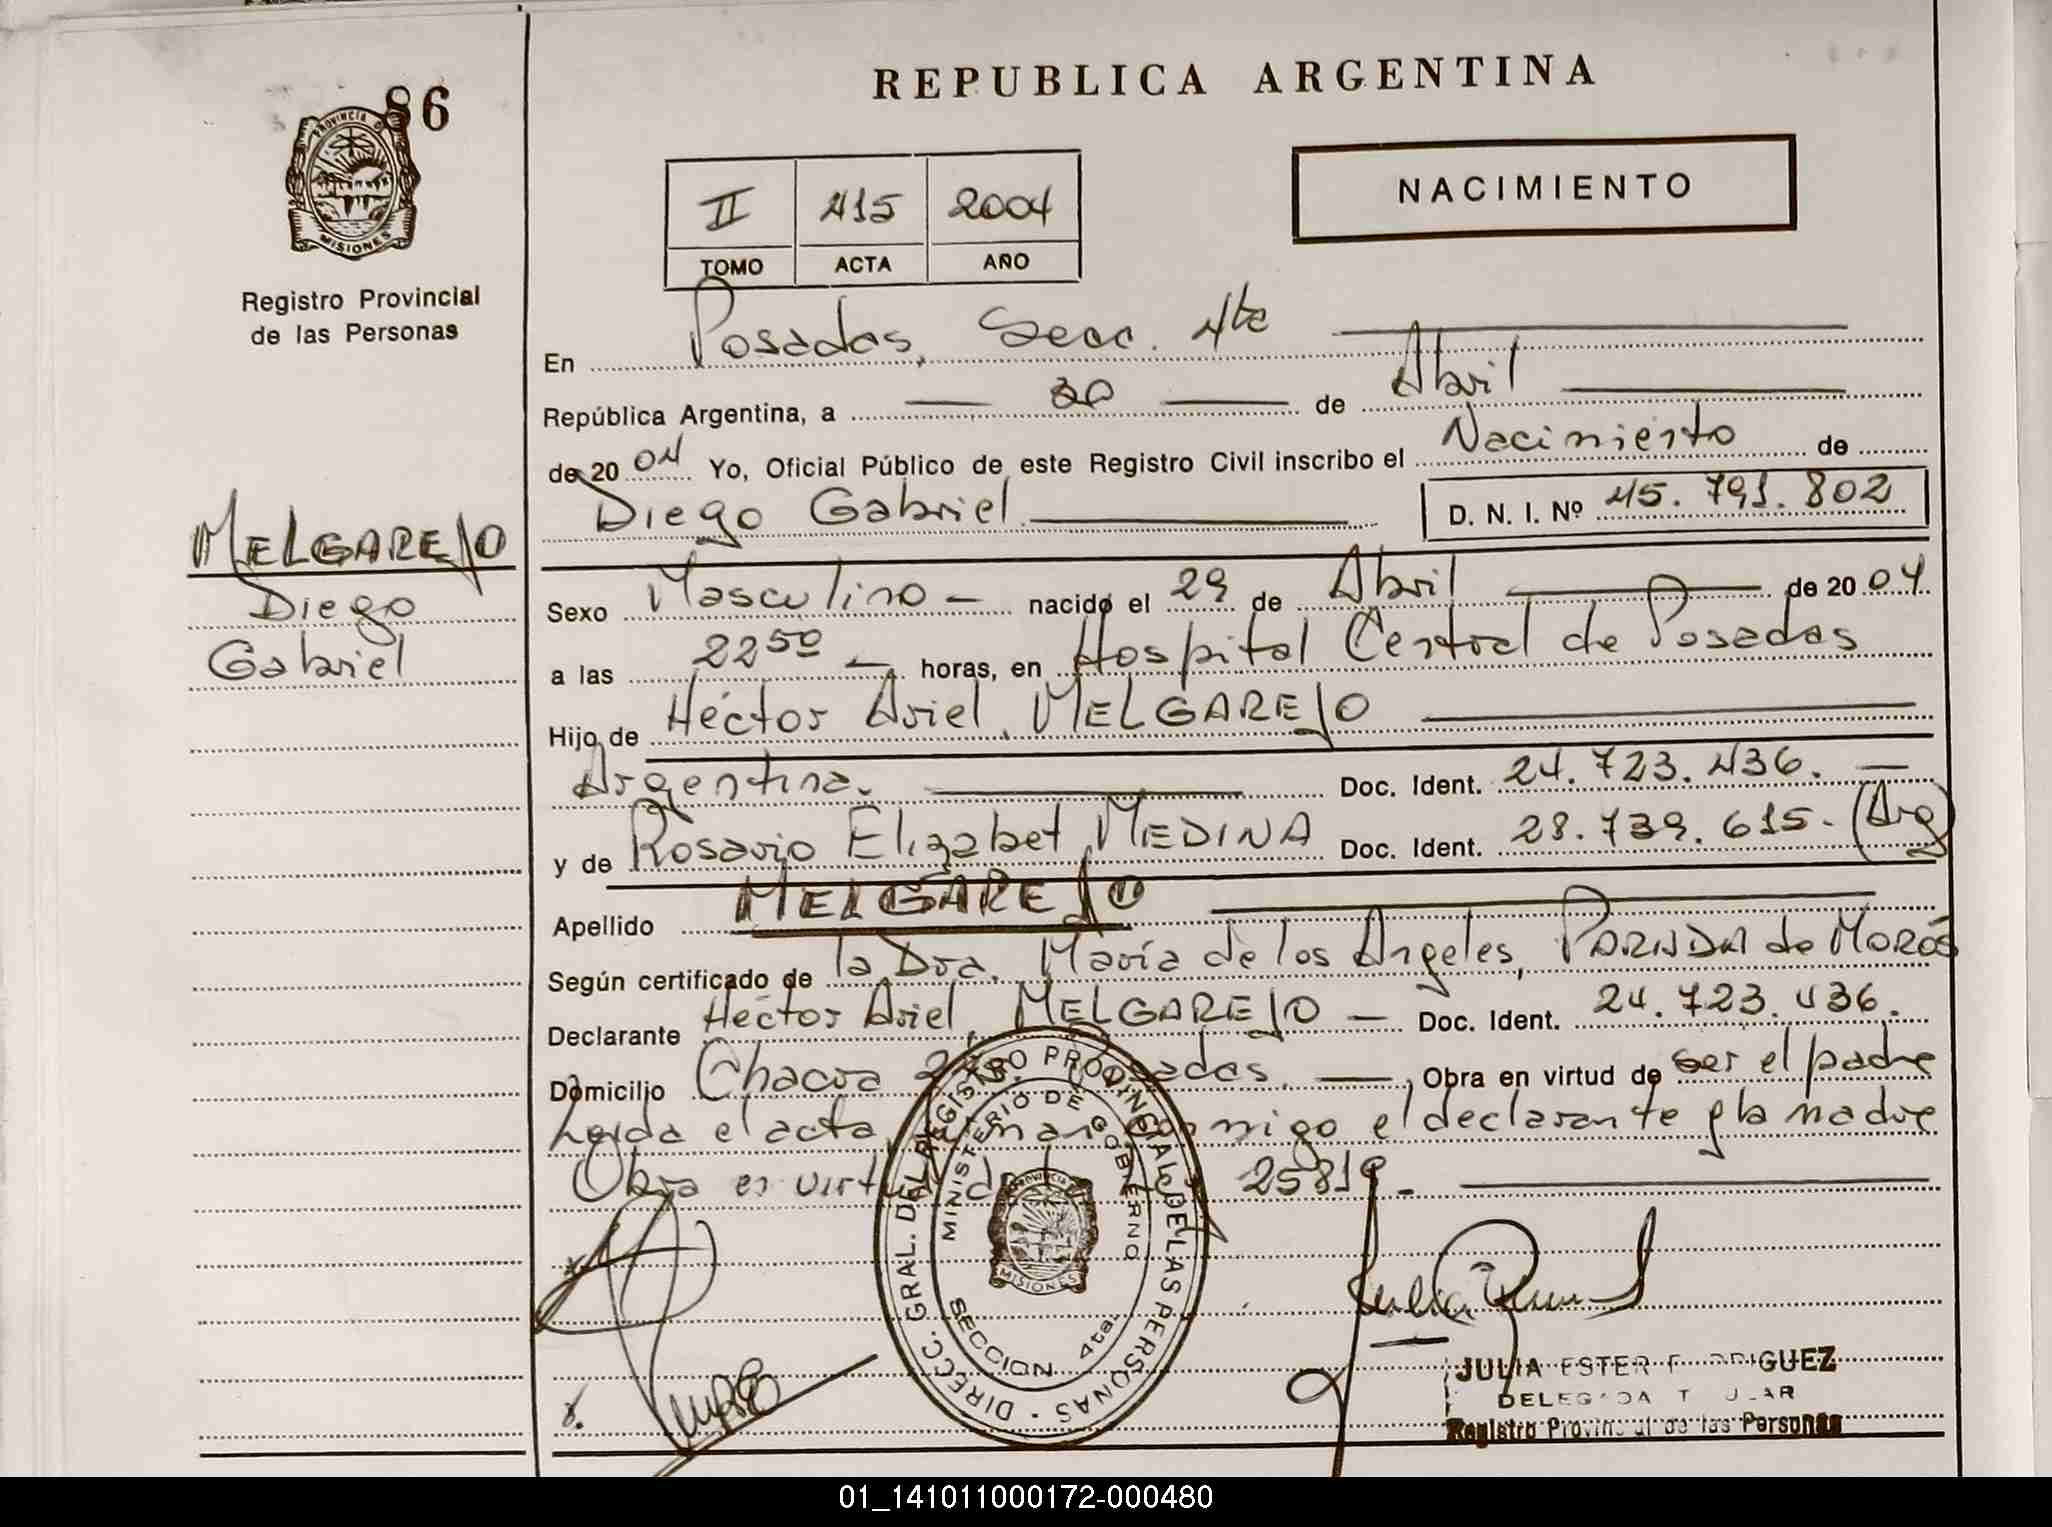 86
PROVINCIA DE
MISIONES
Registro Provincial
de las Personas
MELGAREJO
Diego
Gabriel
REPUBLICA ARGENTINA
NACIMIENTO
II 415 2004
TOMO ACTA AÑO
En Posadas, Secc. 4ta
República Argentina, a 30 de Abril
de 20 04 Yo, Oficial Público de este Registro Civil inscribo el Nacimiento de
Diego Gabriel D. N. I. Nº 45.791.802
Sexo Masculino nacido el 29 de Abril de 20 04
a las 22 50 horas, en Hospital Central de Posadas
Hijo de Héctor Ariel, MELGAREJO
Argentina. Doc. Ident. 24.723.436.
y de Rosario Elizabet, MEDINA Doc. Ident. 28.739.615. (Arg)
Apellido MELGAREJO
Según certificado de la Dra. María de los Angeles, de
Declarante Héctor Ariel, MELGAREJO Doc. Ident. 24.723.436.
Domicilio Chacra Posadas. , Obra en virtud de ser el padre
Leída el acta, conmigo el declarante y la madre
Obra en virtud de 25819.
DIRECC. GRAL. DEL REGISTRO PROVINCIAL DE LAS PERSONAS
MINISTERIO DE GOBIERNO
PROVINCIA
MISIONES
SECCION 4ta.
JULIA ESTER
Registro Provincial de las Personas
01_141011000172-000480